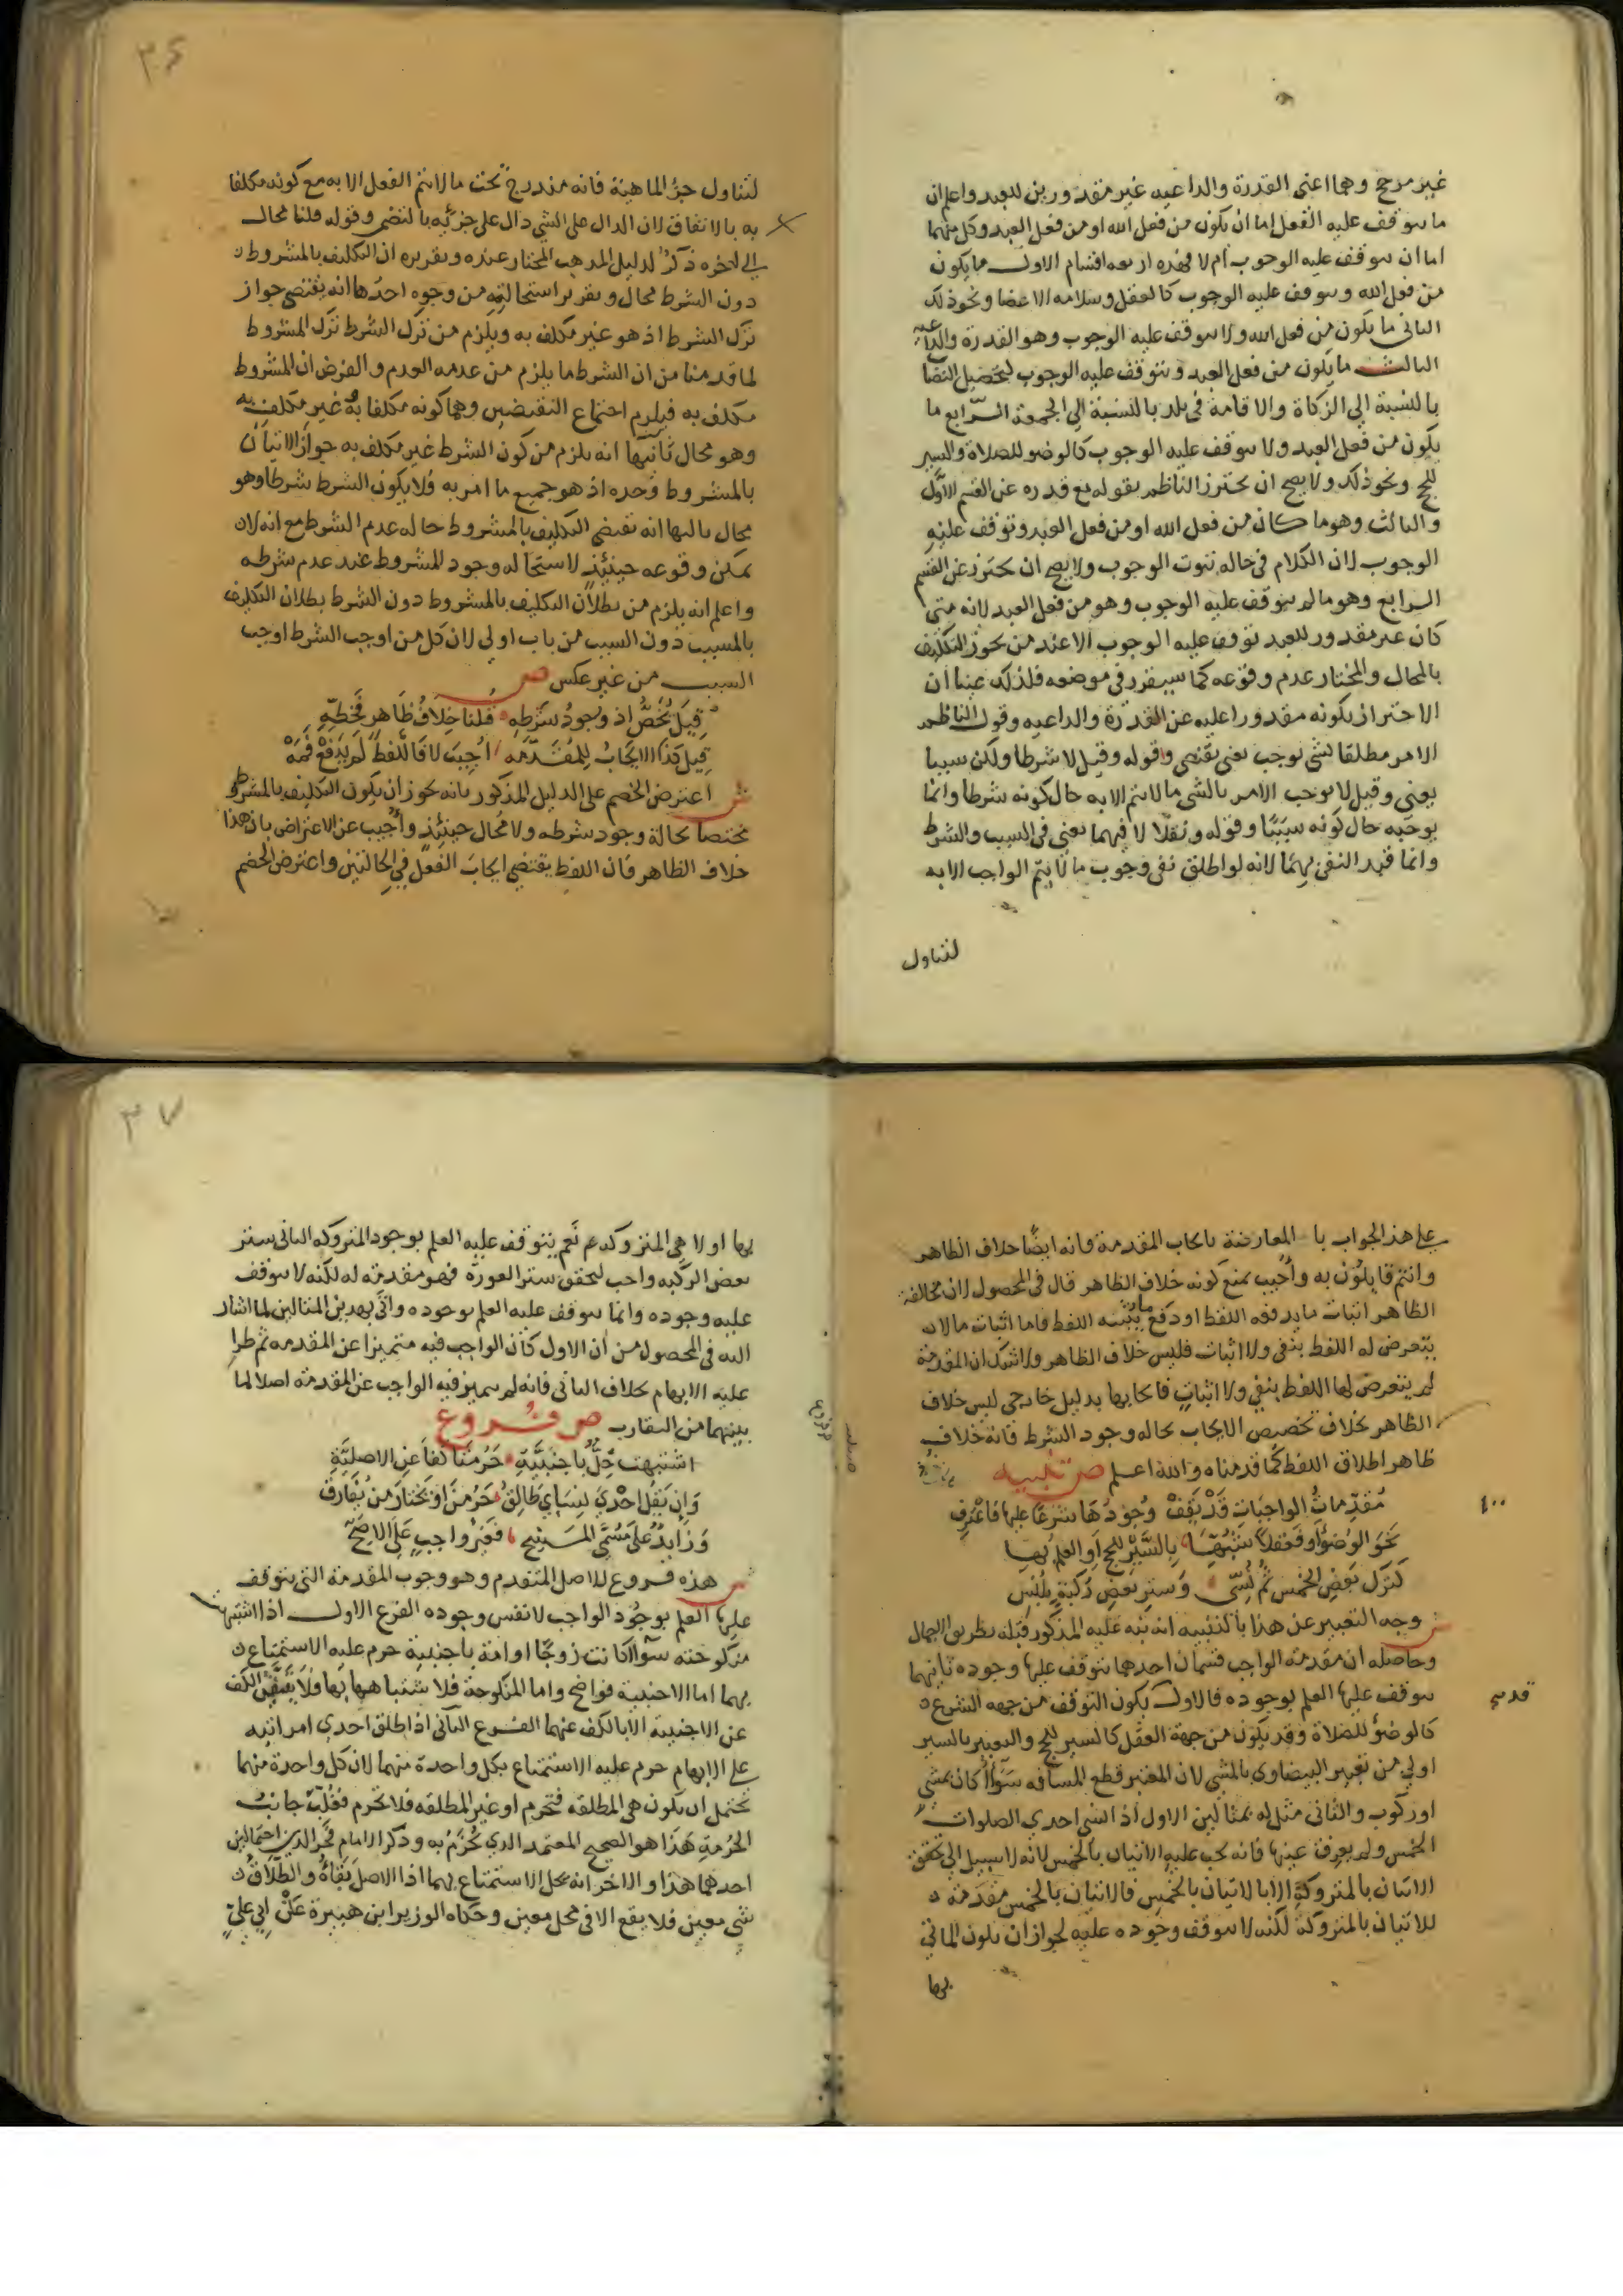 غير مرجح وهما اعنى القدرة والداعيه غير مقدورين للعبد واعلم ان
ما سوقف عليه الفعل اما ان يكون من فعل الله او من فعل العبد وكل منهما
اما ان سوقف عليه الوجوب أم لا فهذه اربعه اقسام الاول ما يكون
من فعل الله وسوقف عليه الوجوب كالعقل وسلامه الاعضا ونحو ذلك
الثانى ما يكون من فعل الله ولا سوقف عليه الوجوب وهو القدرة والداعيه
الثالث ما يكون من فعل العبد وسوقف عليه الوجوب كتحصيل النصاب
بالنسبة الى الزكاة والاقامة فى بلد بالنسبة الى الجمعة الرابع ما
يكون من فعل العبد ولا سوقف عليه الوجوب كالوضو للصلاة والسير
للحج ونحو ذلك ولا يصح ان يحترز الناظم بقوله مع قدره عن القسم الاول
والثالث وهو ما كان من فعل الله او من فعل العبد وتوقف عليه
الوجوب لان الكلام فى حاله ثبوت الوجوب ولا يصح ان يحترز عن القسم
الرابع وهو ما لم سوقف عليه الوجوب وهو من فعل العبد لانه متى
كان غير مقدور للعبد توقف عليه الوجوب الا عند من يجوز التكليف
بالمحال والمختار عدم وقوعه كما سيقرر فى موضعه فلذلك عينا ان
الاحتراز بكونه مقدورا عليه عن القدرة والداعيه وقول الناظم
الامر مطلقا لشى يوجب يعنى يقتضى وقوله وقيل لا شرطا ولكن سببا
يعنى وقيل لا يوجب الامر بالشى ما لا يتم الا به حال كونه شرطا وانما
يوجبه حال كونه سببًا وقوله ونقلا لا فيهما يعنى فى السبب والشرط
وانما قيد النفى بهما لانه لو اطلق نفى وجوب ما لا يتم الواجب الا به
لتناول
٣٦
لتناول جزؤ الماهية فانه مندرج تحت ما لا يتم الفعل الا به مع كونه مكلفا
به بالاتفاق لان الدال على الشى دال على جزئه بالتضمن وقوله قلنا محال
الى اخره ذكر لدليل المذهب المختار عنده وتقريره ان التكليف بالمشروط
دون الشرط محال وتقرير استحالته من وجوه احدها انه يقتضى جواز
ترك الشرط اذ هو غير مكلف به ويلزم من ترك الشرط ترك المشروط
لما قدمنا من ان الشرط ما يلزم من عدمه العدم والفرض ان المشروط
مكلف به فيلزم اجتماع النقيضين وهما كونه مكلفا به غير مكلف به
وهو محال ثانيها انه يلزم من كون الشرط غير مكلف به جواز الاتيان
بالمشروط وحده اذ هو جميع ما امر به فلا يكون الشرط شرطا وهو
محال ثالثها انه يقتضى التكليف بالمشروط حاله عدم الشرط مع انه لا
يمكن وقوعه حينئذ لاستحاله وجود المشروط عند عدم شرطه
واعلم انه يلزم من بطلان التكليف بالمشروط دون الشرط بطلان التكليف
بالمسبب دون السبب من باب اولى لان كل من اوجب الشرط اوجب
السبب من غير عكس ص
قيل يخص اذ وجود شرطه قلنا خلاف ظاهر فخطه
قيل كذا الايجاب للمقدمه اجيب لا فاللفظ لم يدفع فمه
ش اعترض الخصم على الدليل المذكور بانه يجوز ان يكون التكليف بالمشروط
مختصا بحالة وجود شرطه ولا محال حينئذ واجيب عن الاعتراض بان هذا
خلاف الظاهر فان اللفظ يقتضى ايجاب الفعل فى الحالتين واعترض الخصم
على هذا الجواب بالمعارضة بايجاب المقدمة فانه ايضًا خلاف الظاهر
وانتم قايلون به وأجيب بمنع كونه خلاف الظاهر قال فى المحصول لان مخالفة
الظاهر اثبات ما يدفعه اللفظ او دفع ما يثبته اللفظ فاما اثبات ما لا
يتعرض له اللفظ بنفى ولا اثبات فليس خلاف الظاهر ولا شك ان المقدمة
لم يتعرض لها اللفظ بنفي ولا اثبات فايجابها بدليل خارجى ليس خلاف
الظاهر بخلاف تخصيص الايجاب بحاله وجود الشرط فانه خلاف
ظاهر اطلاق اللفظ كما قدمناه والله اعلم ص تنبيه
مقدمات الواجبات قد يقف وجودها شرعًا عليها فاعترف
نحو الوضو او فعقلا شبها بالسير للحج او العلم بها
كترك بعض الخمس ثم نسى وستر بعض ركبة يلبس
ش وجه التعبير عن هذا بالتنبيه انه نبه عليه المذكور قبله بطريق الاجمال
وحاصله ان مقدمة الواجب قسمان احدهما سوقف عليها وجوده ثانيهما
سوقف عليها العلم بوجوده فالاول يكون التوقف من جهه الشرع
كالوضؤ للصلاة وقد يكون من جهة العقل كالسير للحج والتعبير بالسير
اولى من تعبير البيضاوى بالمشى لان المعتبر قطع المسافه سواأ كان بمشى
او ركوب والثانى مثل له بمثالين الاول اذا نسى احدى الصلوات
الخمس ولم يعرف عينها فانه يجب عليه الاتيان بالخمس لانه لا سبيل الى تحقق
الاتيان بالمتروكة الا بالاتيان بالخمس فالاتيان بالخمس مقدمة
للاتيان بالمتروكة لكنه لا سوقف وجوده عليه لجواز ان يكون الماتى
بها
٣٧
بها اولا هى المتروكه نعم يتوقف عليه العلم بوجود المتروكه الثانى ستر
بعض الركبه واجب لتحقق ستر العورة فهو مقدمة له لكنه لا سوقف
عليه وجوده وانما سوقف عليه العلم بوجوده واتى بهدين المثالين لما اشار
اليه فى المحصول من ان الاول كان الواجب فيه متميزا عن المقدمه ثم طرا
عليه الابهام بخلاف الثانى فانه لم يتميز فيه الواجب عن المقدمة اصلا لما
بينهما من التقارب ص فروع
اشتبهت حل باجنبية حرمتا كفا عن الاصلية
وان يقل احدى نساي طالق حرمن او يختار من يفارق
وزايد على مسمى المسح فغير واجب على الاصح
ش هذه فروع للاصل المتقدم وهو وجوب المقدمة التى سوقف
عليها العلم بوجود الواجب لا نفس وجوده الفرع الاول اذا اشتبهت
منكوحته سوأ كانت زوجًا او امة باجنبية حرم عليه الاستمتاع
بهما اما الاجنبية فواضح واما المنكوحة فلاشتباهها بها فلا يتيقن الكف
عن الاجنبية الا بالكف عنهما الفرع الثانى اذا طلق احدى امراتيه
على الابهام حرم عليه الاستمتاع بكل واحدة منهما لان كل واحدة منهما
يحتمل ان يكون هى المطلقه فتحرم او غير المطلقه فلا تحرم فغلب جانب
الحرمة هذا هو الصحيح المعتمد الذى نجزم به وذكر الامام فخر الدين احتمالين
احدهما هذا والاخر انه يحل الاستمتاع بهما اذ الاصل بقاؤه والطلاق
شى معين فلا يقع الا فى محل معين وحكاه الوزير ابن هبيرة عن ابى على